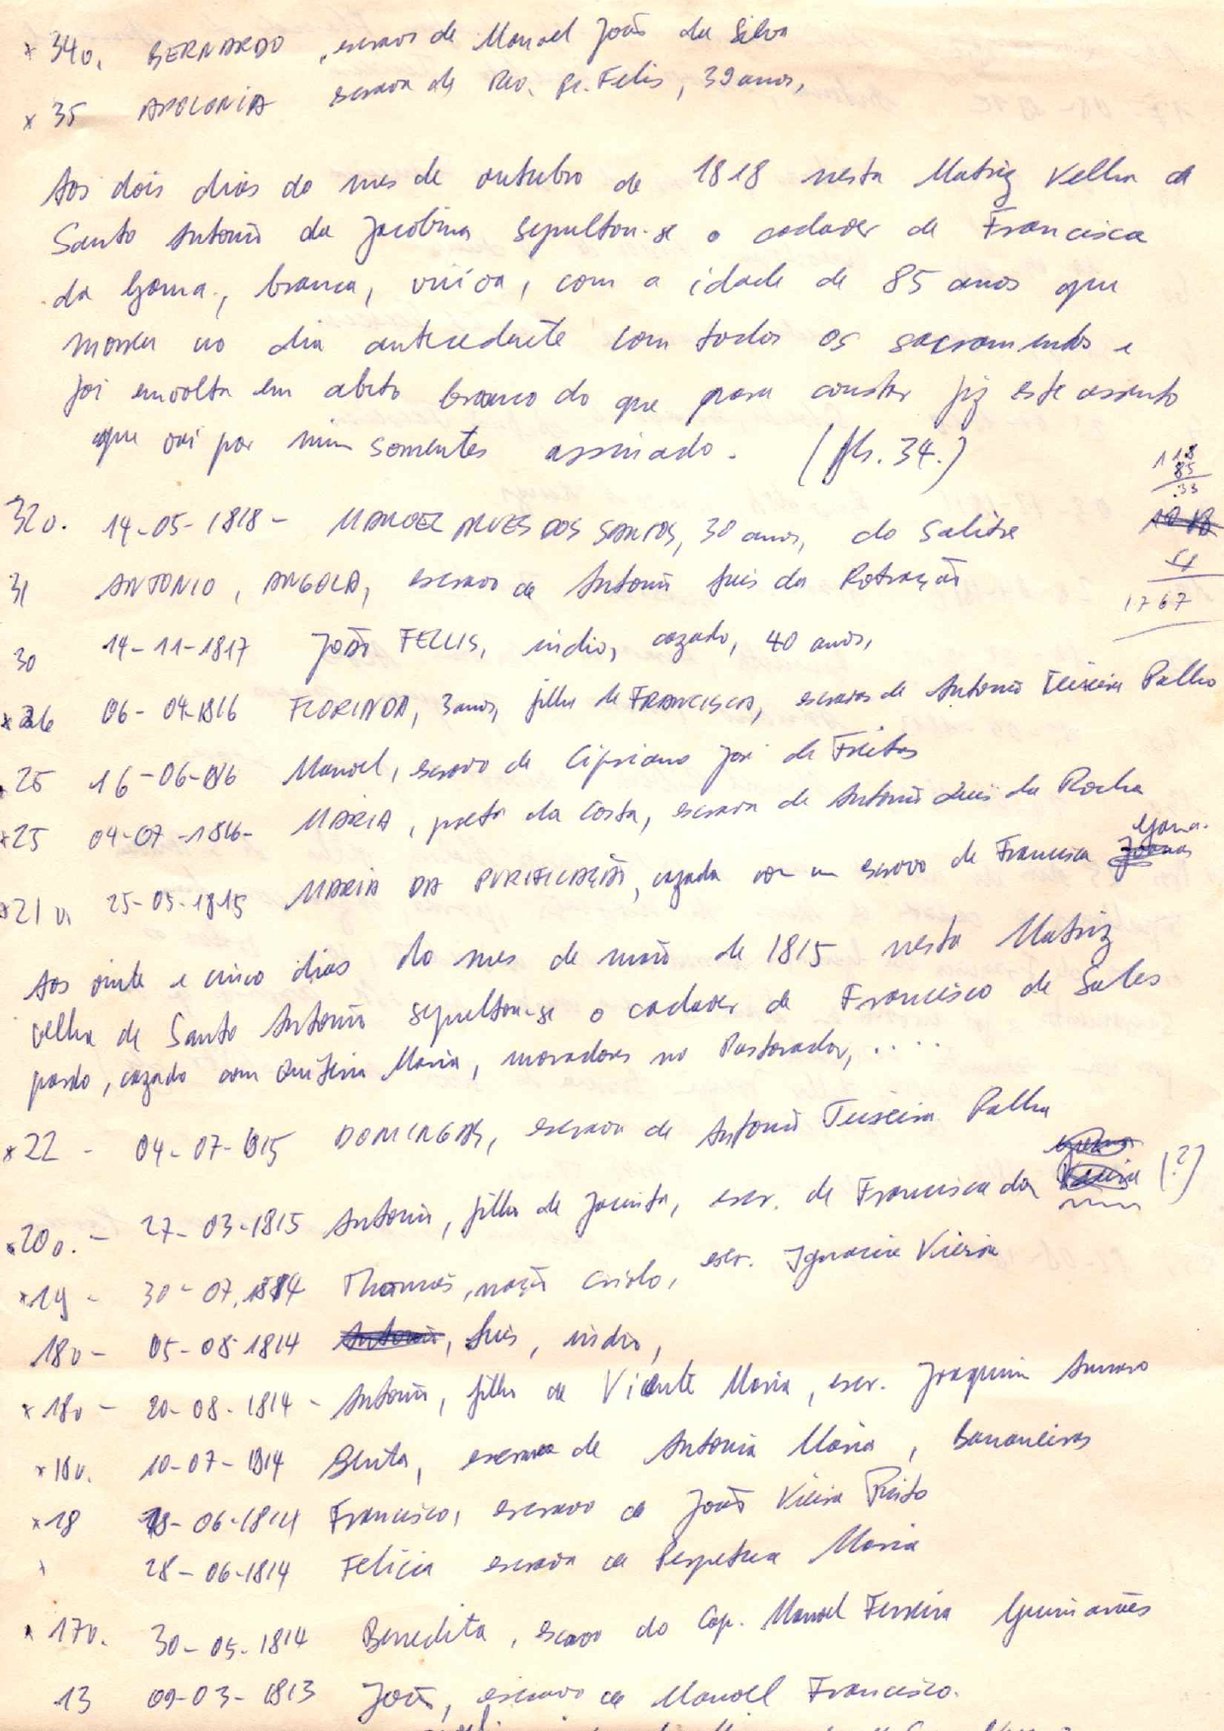 x 34v. BERNARDO, escravo de Manoel João da Silva
x 35 APOLONIA escrava do Rev. Pe. Felis, 39 anos,
Aos dois dias do mes de outubro de 1818 nesta Matriz Velha de
Santo Antonio da Jacobina sepultou-se o cadaver de Francisca
da Gama, branca, viúva, com a idade de 85 anos que
morreu no dia antecedente com todos os sacramentos e
foi envolta em abito branco do que para constar fiz este assento
que vai por mim somentes assinado. (fls. 34.)
118
85
33
32v. 14-05-1818- MANOEL ALVES DOS SANTOS, 30 anos, do Salitre
31 ANTONIO, ANGOLA, escravo de Antonio Luis da
1767
30 14-11-1817 João FELLIS, indio, cazado, 40 anos,
x 26 06-04-1816 FLORINDA, 3 anos, filha de FRANCISCA, escravas de Antonio Teixeira Palha
25 16-06-1816 Manoel, escravo de Cipriano José de Freitas
x 25 04-07-1816- MARIA, preta da Costa, escrava de Antonio Luis da Rocha
x 21v. 25-05-1815 MARIA DA PURIFICAÇÃO, cazada com um escravo de Francisca Gama.
Aos vinte e cinco dias do mes de maio de 1815 nesta Matriz
velha de Santo Antonio sepultou-se o cadaver de Francisco de Sales
pardo, cazado com Quiteria Maria, moradores no Pastorador, ....
x 22 - 04-07-1815 DOMINGAS, escrava de Antonio Teixeira Palha
x 20v. - 27-03-1815 Antonio, filho de Jacinta, escr. de Francisca da (?)
x 19 - 30-07-1814 Thomás, nação criolo, escr. Ignacia Vieira
18v - 05-08-1814 Luis, indio,
x 18v - 20-08-1814 - Antonio, filho de Vicente Maria, escr. Joaquim Amaro
x 18v. 10-07-1814 Benta, escrava de Antonia Maria, Bananeiras
x 18 -06-1814 Francisco, escravo de João Vieira Preto
28-06-1814 Felicia escrava de Perpetua Maria
x 17v. 30-05-1814 Benedita, escrava do Cap. Manoel Ferreira Guimarães
13 09-03-1813 João, escravo de Manoel Francisco.